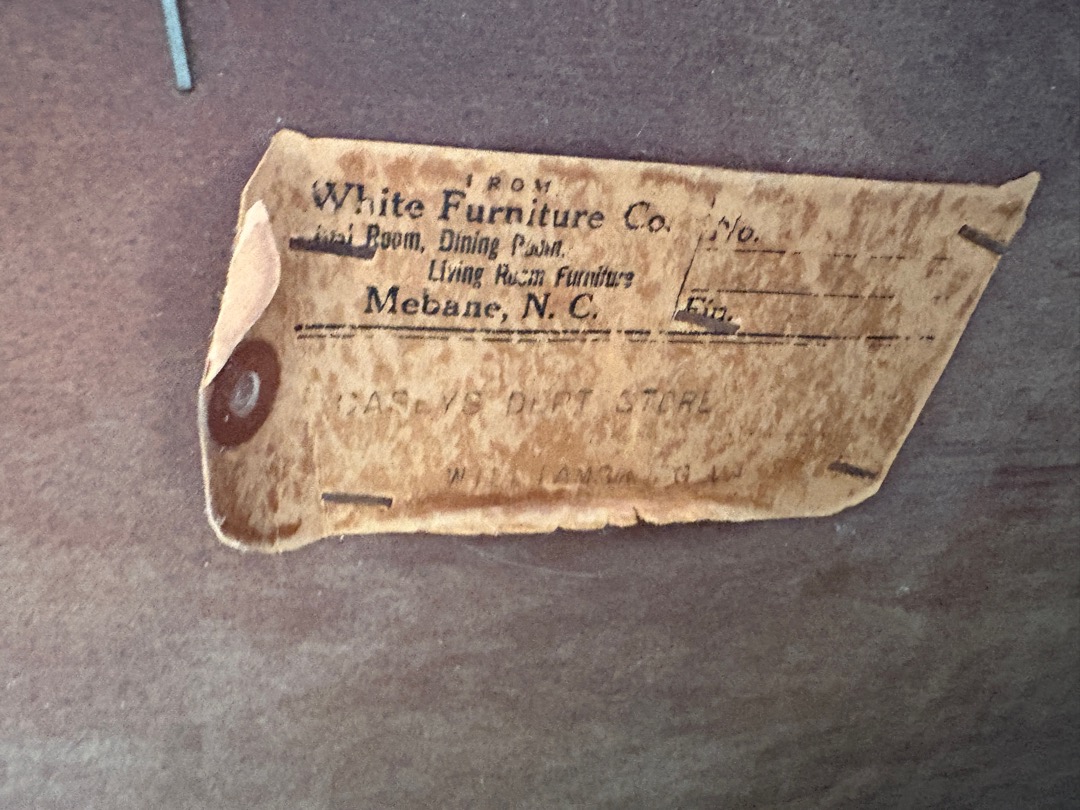 FROM
White Furniture Co.
Room, Dining Room,
Living Room Furniture
Mebane, N. C.
No.
Fin.
DEPT STORE